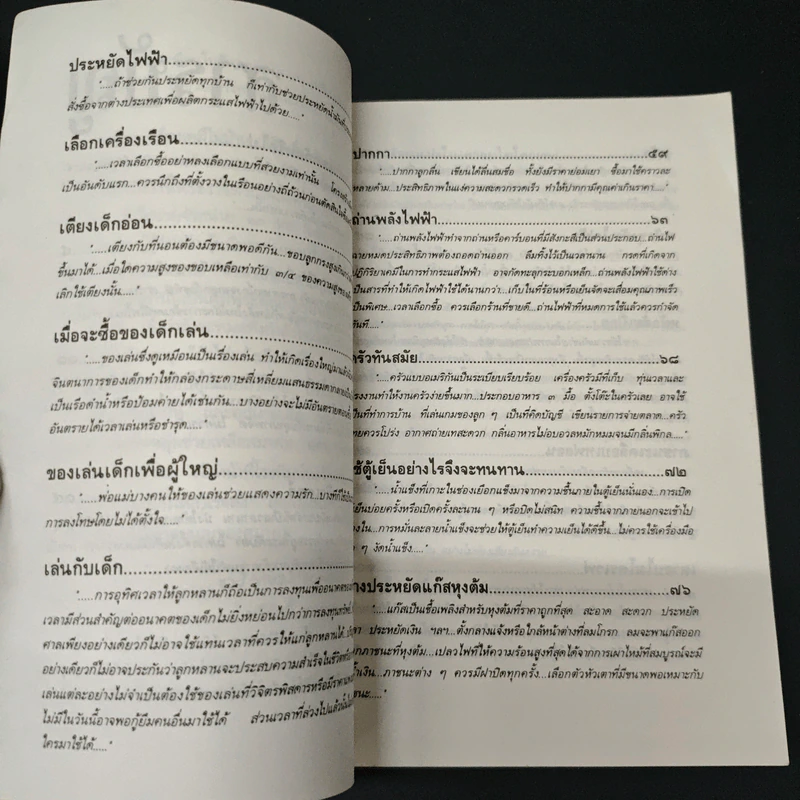 ประหยัดไฟฟ้า
"....ถ้าช่วยกันประหยัดทุกบ้าน ก็เท่ากับช่วยประหยัดน้ำมันที่
สั่งซื้อจากต่างประเทศเพื่อผลิตกระแสไฟฟ้าไปด้วย...."
เลือกเครื่องเรือน
"....เวลาเลือกซื้ออย่าหลงเลือกแบบที่สวยงามเท่านั้น
เป็นอันดับแรก...ควรนึกถึงที่ตั้งวางในเรือนอย่างถี่ถ้วนก่อนตัดสินใจซื้อ
เตียงเด็กอ่อน
"....เตียงกับที่นอนต้องมีขนาดพอดีกัน...ขอบลูกกรงสูง
ขึ้นมาได้...เมื่อใดความสูงของขอบเหลือเท่ากับ ๓/๔ ของความสูง
เลิกใช้เตียงนั้น...."
เมื่อจะซื้อของเด็กเล่น
"....ของเล่นซึ่งดูเหมือนเป็นเรื่องเล่น ทำให้เกิดเรื่องใหญ่มา
จินตนาการของเด็กทำให้กล่องกระดาษสี่เหลี่ยมแสนธรรมดา
เป็นเรือดำน้ำหรือป้อมค่ายได้เช่นกัน...บางอย่างจะไม่มีอันตราย
อันตรายได้เวลาเล่นหรือชำรุด...."
ของเล่นเด็กเพื่อผู้ใหญ่
"....พ่อแม่บางคนให้ของเล่นช่วยแสดงความรัก...บางทีก็ใช้
การลงโทษโดยไม่ได้ตั้งใจ...."
เล่นกับเด็ก
"....การอุทิศเวลาให้ลูกหลานก็ถือเป็นการลงทุนเพื่ออนาคต
เวลามีส่วนสำคัญต่ออนาคตของเด็กไม่ยิ่งหย่อนไปกว่าการลงทุน
ศาลเพียงอย่างเดียวก็ไม่อาจใช้แทนเวลาที่ควรให้แก่ลูกหลานได้
อย่างเดียวก็ไม่อาจประกันว่าลูกหลานจะประสบความสำเร็จในชีวิต
เล่นแต่ละอย่างไม่จำเป็นต้องใช้ของเล่นที่วิจิตรพิสดารหรือมีราคา
ไม่มีในวันนี้อาจพอกู้ยืมคนอื่นมาใช้ได้ ส่วนเวลาที่ล่วงไปแล้วนั้น
ใครมาใช้ได้...."
ปากกา ๕๙
"....ปากกาลูกลื่น เขียนได้ลื่นสมชื่อ ทั้งยังมีราคาย่อมเยา ซื้อมาใช้คราวละ
หลายด้าม...ประสิทธิภาพในแง่ความสะดวกรวดเร็ว ทำให้ปากกามีคุณค่าเกินราคา...."
ถ่านพลังไฟฟ้า ๖๓
"....ถ่านพลังไฟฟ้าทำจากถ่านหรือคาร์บอนที่มีสังกะสีเป็นส่วนประกอบ...ถ่านไฟ
ฉายหมดประสิทธิภาพต้องถอดถ่านออก ลืมทิ้งไว้เป็นเวลานาน กรดที่เกิดจาก
ปฏิกิริยาเคมีในการทำกระแสไฟฟ้า อาจกัดทะลุกระบอกเหล็ก...ถ่านพลังไฟฟ้าใช้ด่าง
เป็นสารที่ทำให้เกิดไฟฟ้าใช้ได้นานกว่า...เก็บในที่ร้อนหรือเย็นจัดจะเสื่อมคุณภาพเร็ว
เป็นพิเศษ...เวลาเลือกซื้อ ควรเลือกร้านที่ขายดี...ถ่านไฟฟ้าที่หมดการใช้แล้วควรกำจัด
ทันที...."
ครัวทันสมัย ๖๘
"....ครัวแบบอเมริกันเป็นระเบียบเรียบร้อย เครื่องครัวมีที่เก็บ ทุ่นเวลาและ
แรงงานทำให้งานครัวง่ายขึ้นมาก...ประกอบอาหาร ๓ มื้อ ตั้งโต๊ะในครัวเลย อาจใช้
เป็นที่ทำการบ้าน ที่เล่นเกมของลูก ๆ เป็นที่คิดบัญชี เขียนรายการจ่ายตลาด...ครัว
ไทยควรโปร่ง อากาศถ่ายเทสะดวก กลิ่นอาหารไม่อบอวลหมักหมมจนมีกลิ่นพิกล...."
ใช้ตู้เย็นอย่างไรจึงจะทนทาน ๗๒
"....น้ำแข็งที่เกาะในช่องเยือกแข็งมาจากความชื้นภายในตู้เย็นนั่นเอง...การเปิด
เย็นบ่อยครั้งหรือเปิดครั้งละนาน ๆ หรือปิดไม่สนิท ความชื้นจากภายนอกจะเข้าไป
ใน...การหมั่นละลายน้ำแข็งจะช่วยให้ตู้เย็นทำความเย็นได้ดีขึ้น...ไม่ควรใช้เครื่องมือ
ๆ งัดน้ำแข็ง...."
างประหยัดแก๊สหุงต้ม ๗๖
"....แก๊สเป็นเชื้อเพลิงสำหรับหุงต้มที่ราคาถูกที่สุด สะอาด สะดวก ประหยัด
ประหยัดเงิน ฯลฯ...ตั้งกลางแจ้งหรือใกล้หน้าต่างที่ลมโกรก ลมจะพาแก๊สออก
จากภาชนะที่หุงต้ม...เปลวไฟที่ให้ความร้อนสูงที่สุดได้จากการเผาไหม้ที่สมบูรณ์จะมี
น้ำเงิน...ภาชนะต่าง ๆ ควรมีฝาปิดทุกครั้ง...เลือกตัวหัวเตาที่มีขนาดพอเหมาะกับ
ชนะ...."